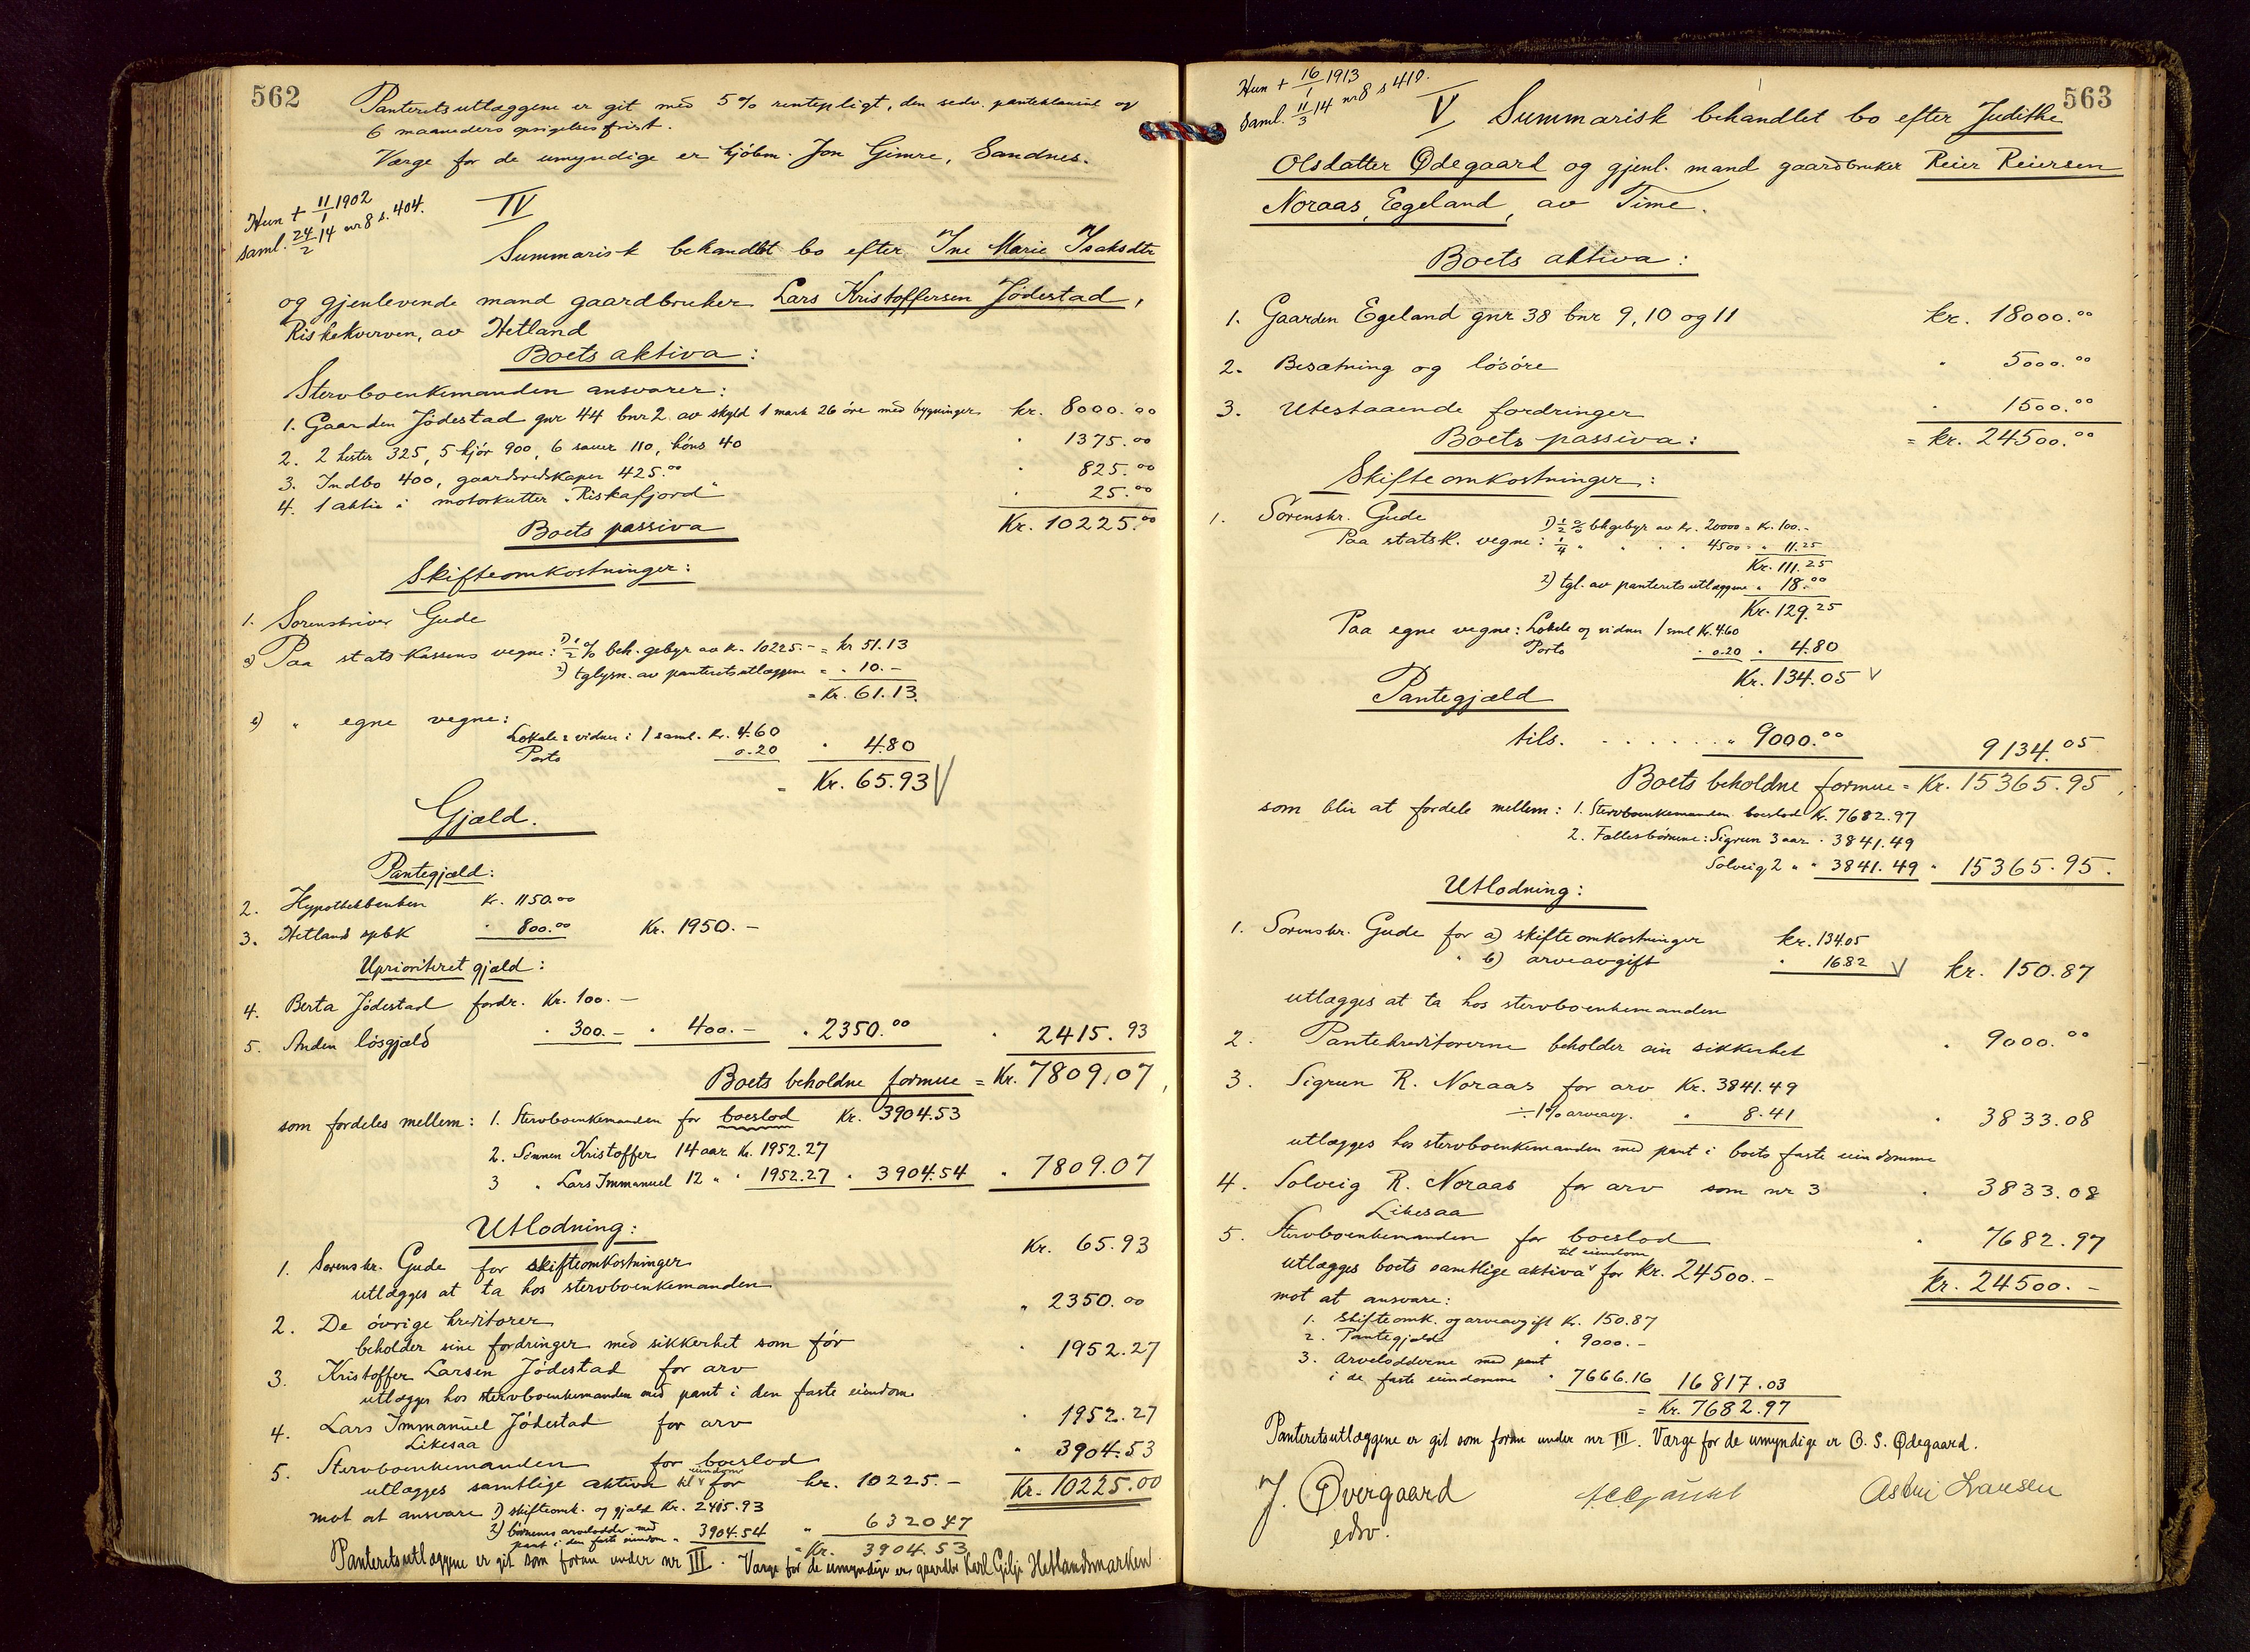 562
Panteretsutlæggene er git med 5% rentepligt, den sedv. panteklausul og
6 maaneders opsigelsesfrist.
Værge for de umyndige er kjøbm. Jon Gimre, Sandnes.
Hun + 11/1 1902
saml. 24/2 14 nr 8 s. 404.
IV
Summarisk behandlet bo efter Ine Marie Isaksdtr
og gjenlevende mand gaardbruker Lars Kristoffersen Jödestad,
Riskekverven, av Hetland
Boets aktiva:
Stervboenkemanden ansvarer:
1. Gaarden Jödestad gnr 44 bnr 2 av skyld 1 mark 26 öre med bygninger kr. 8000.00
2. 2 hester 325, 5 kjör 900, 6 sauer 110, höns 40 " 1375.00
3. Indbo 400, gaardsredskaper 425.00 " 825.00
4. 1 aktie i motorkutter "Riskafjord" " 25.00
Boets passiva Kr. 10225.00
Skifteomkostninger:
1. Sorenskriver Gude
a) Paa statskassens vegne: 1) 1/2 % beh. gebyr av kr. 10225.- = kr 51.13
2) tglysn. av panteretsutlæggene = " 10.-
= Kr. 61.13.
b) " egne vegne:
Lokale & vidner i 1 saml. Kr. 4.60
Porto 0.20 " 4.80
= Kr. 65.93 V
Gjæld.
Pantegjæld:
2. Hypothekbanken Kr. 1150.00
3. Hetland spbk " 800.00 Kr. 1950.-
Uprioriteret gjæld:
4. Berta Jödestad fordr. Kr. 100.-
5. Anden lösgjæld " 300.- " 400.- " 2350.00 " 2415.93
Boets beholdne formue = Kr. 7809.07,
som fordeles mellem: 1. Stervboenkemanden for boeslod Kr. 3904.53
2. Sönnen Kristoffer 14 aar Kr. 1952.27
3 " Lars Immanuel 12 " " 1952.27 " 3904.54 " 7809.07
Utlodning:
1. Sorenskr. Gude for skifteomkostninger Kr. 65.93
utlægges at ta hos stervboenkemanden
2. De övrige kreditorer " 2350.00
beholder sine fordringer med sikkerhet som för
3. Kristoffer Larsen Jödestad for arv " 1952.27
utlægges hos stervboenkemanden med pant i den faste eiendom
4. Lars Immanuel Jödestad for arv " 1952.27
Likesaa
5. Stervboenkemanden for boeslod " 3904.53
utlægges samtlige aktiva til eiendom for kr. 10225.- Kr. 10225.00
mot at ansvare 1) skifteomk. og gjæld Kr. 2415.93
2) börnenes arvelodder med
pant i den faste eiendom " 3904.54 " 6320.47
= Kr. 3904.53
Panteretsutlæggene er git som foran under nr III. Værge for de umyndige er gaardbr Karl Gilje Hetlandsmarken
563
Hun + 16/1 1913
Saml. 11/3 14 nr 8 s 410.
V Summarisk behandlet bo efter Judithe
Olsdatter Ødegaard og gjenl. mand gaardbruker Reier Reiersen
Noraas, Egeland, av Time.
Boets aktiva:
1. Gaarden Egeland gnr 38 bnr 9, 10 og 11 kr. 18000.00
2. Besætning og lösöre " 5000.00
3. Utestaaende fordringer " 1500.00
Boets passiva: = kr. 24500.00
Skifteomkostninger:
1. Sörenskr. Gude
Paa statsk. vegne: 1) 1/2 % bhgebyr av kr. 20000 = Kr. 100.-
1/4 " " " " 4500 = " 11.25
Kr. 111.25
2) tgl. av panteretsutlæggene " 18.00
Kr. 129.25
Paa egne vegne: Lokale og vidner 1 saml Kr. 4.60
Porto " 0.20 " 4.80
Kr. 134.05 V
Pantegjæld
tils. . . . . . . " 9000.00 9134.05
Boets beholdne formue = Kr. 15365.95,
som blir at fordele mellem: 1. Stervboenkemanden boeslod Kr. 7682.97
2. Fællesbörnene: Sigrun 3 aar " 3841.49
Solveig 2 " " 3841.49 " 15365.95.
Utlodning:
1. Sorenskr. Gude for a) skifteomkostninger kr. 134.05
" b) arveavgift " 16.82 V kr. 150.87
utlægges at ta hos stervboenkemanden
2. Pantekreditorerne beholder sin sikkerhet " 9000.00
3. Sigrun R. Noraas for arv Kr. 3841.49
÷ 1% arveavg. " 8.41 " 3833.08
utlægges hos stervboenkemanden med pant i boets faste eiendomme
4. Solveig R. Noraas for arv som nr 3 " 3833.08
Likesaa
5. Stervboenkemanden for boeslod " 7682.97
utlægges boets samtlige aktiva til eiendom for kr. 24500.- kr. 24500.-
mot at ansvare:
1. Skifteomk. og arveavgift Kr. 150.87
2. Pantegjæld " 9000.-
3. Arvelodderne med pant
i de faste eiendomme " 7666.16 16817.03
= Kr. 7682.97
Panteretsutlæggene er git som foran under nr III. Værge for de umyndige er O. S. Ødegaard.
J. Øvergaard
edsv.
Astri Larsen